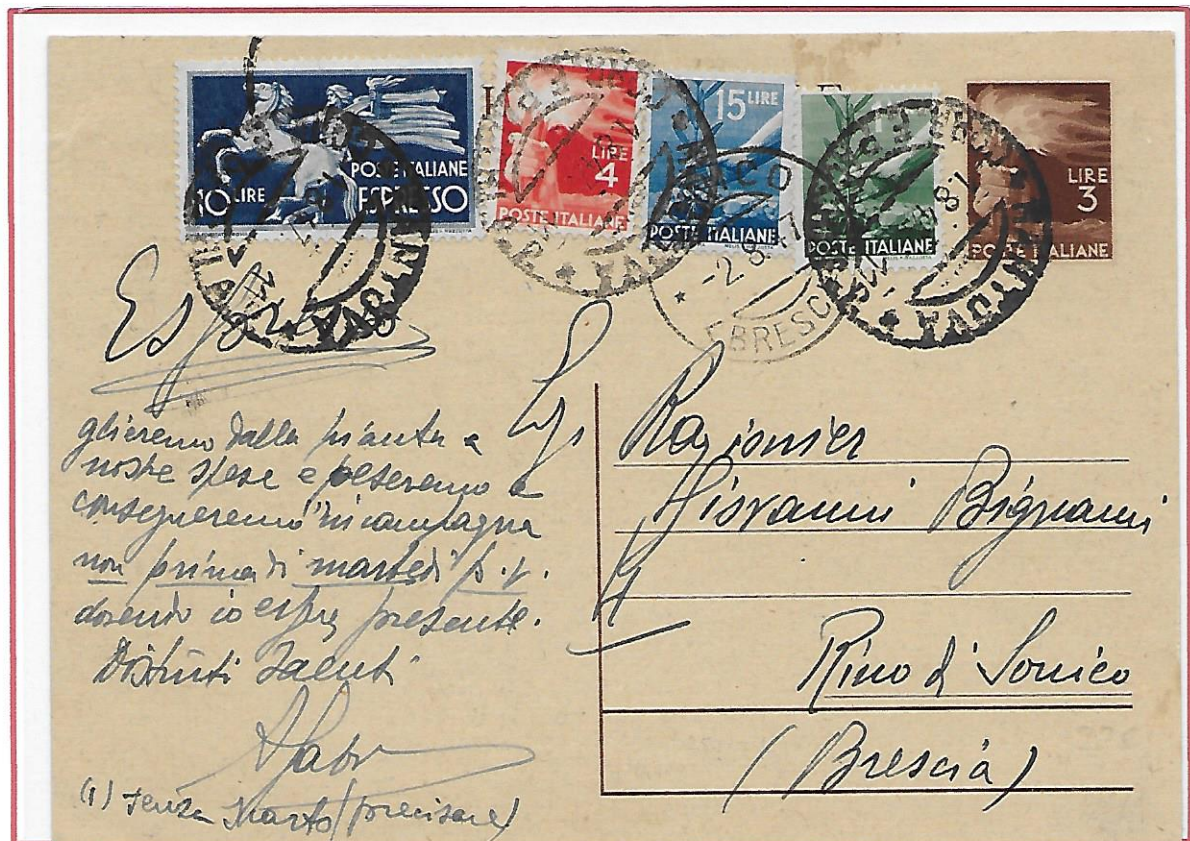 10 LIRE
POSTE ITALIANE
ESPRESSO
LIRE
4
POSTE ITALIANE
15 LIRE
POSTE ITALIANE
POSTE ITALIANE
LIRE
3
POSTE ITALIANE
MANTOVA
MANTOVA
MANTOVA
-2.8.47
BRESC
glieremo dalla pianta a
nostre spese e peseremo e
consegneremo in campagna
non prima di martedì p.v.
dovendo io essere presente.
Distinti saluti
(1) senza (precisare)
Rag
Giovanni Bignami
Rino d' Sonico
(Brescia)